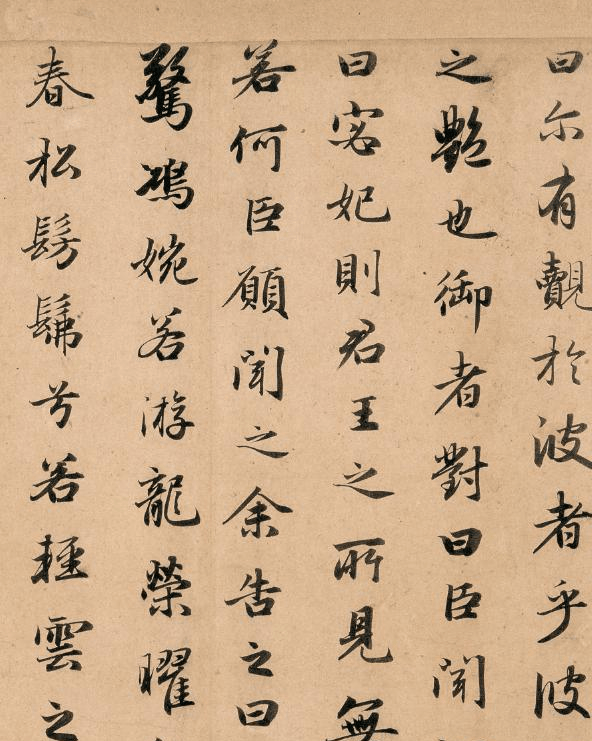 曰尔有觌於波者乎波
之艷也御者對曰臣聞
曰宓妃則君王之所見無
若何臣願聞之余告之曰
驚鴻婉若游龍榮曜
春松髣髴兮若輕雲之